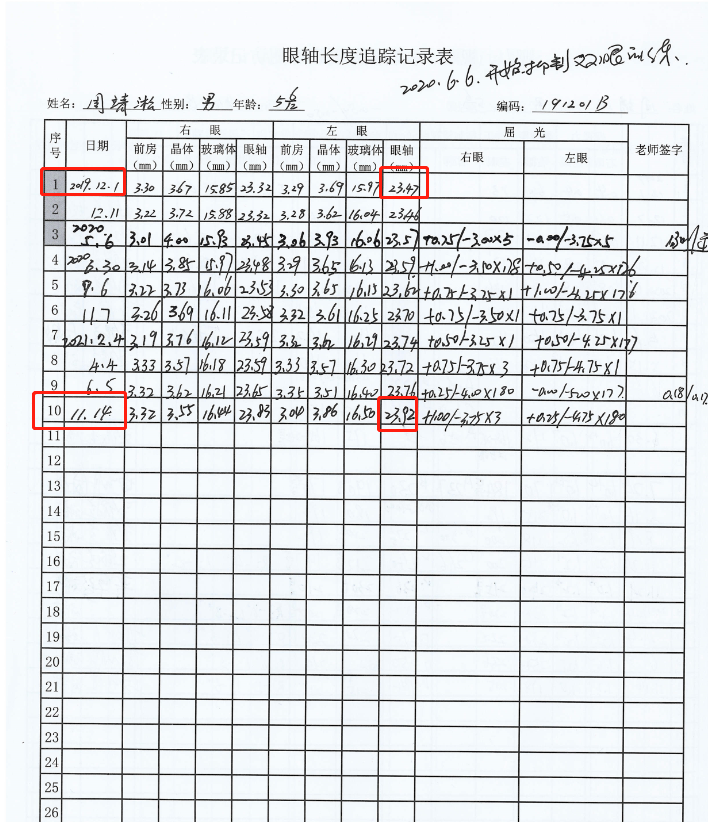 眼轴长度追踪记录表
2020.6.6.开始抑制双眼
姓名： 性别：男 年龄：5岁 6 编码：191201B
序号 日期 右眼 左眼 屈光 老师签字
前房(mm) 晶体(mm) 玻璃体(mm) 眼轴(mm) 前房(mm) 晶体(mm) 玻璃体(mm) 眼轴(mm) 右眼 左眼
1 2019.12.1 3.30 3.67 15.85 23.32 3.29 3.69 15.97 23.47
2 12.11 3.22 3.72 15.88 23.32 3.28 3.62 16.04 23.46
3 2020 5.6 3.01 4.00 15.93 23.45 3.06 3.93 16.06 23.57 +0.25/-3.00×5 -0.00/-3.75×5
4 2020 6.30 3.14 3.85 15.97 23.48 3.29 3.65 16.13 23.59 +1.00/-3.50×178 +0.50/-4.25×176
5 9.6 3.22 3.73 16.06 23.53 3.30 3.65 16.15 23.62 +0.75/-3.25×1 +1.00/-4.25×176
6 11.7 3.26 3.69 16.11 23.58 3.32 3.61 16.25 23.70 +0.75/-3.50×1 +0.75/-3.75×1
7 2021.2.4 3.19 3.76 16.12 23.59 3.32 3.62 16.29 23.74 +0.50/-3.25×1 +0.50/-4.25×177
8 4.4 3.33 3.57 16.18 23.59 3.33 3.57 16.30 23.72 +0.75/-3.75×3 +0.75/-4.75×1
9 6.5 3.32 3.62 16.21 23.65 3.35 3.51 16.40 23.76 +0.25/-4.00×180 -0.00/-5.00×177 0.18/0.17
10 11.14 3.32 3.55 16.44 23.83 3.04 3.86 16.50 23.92 +1.00/-3.75×3 +0.25/-4.75×180
11
12
13
14
15
16
17
18
19
20
21
22
23
24
25
26